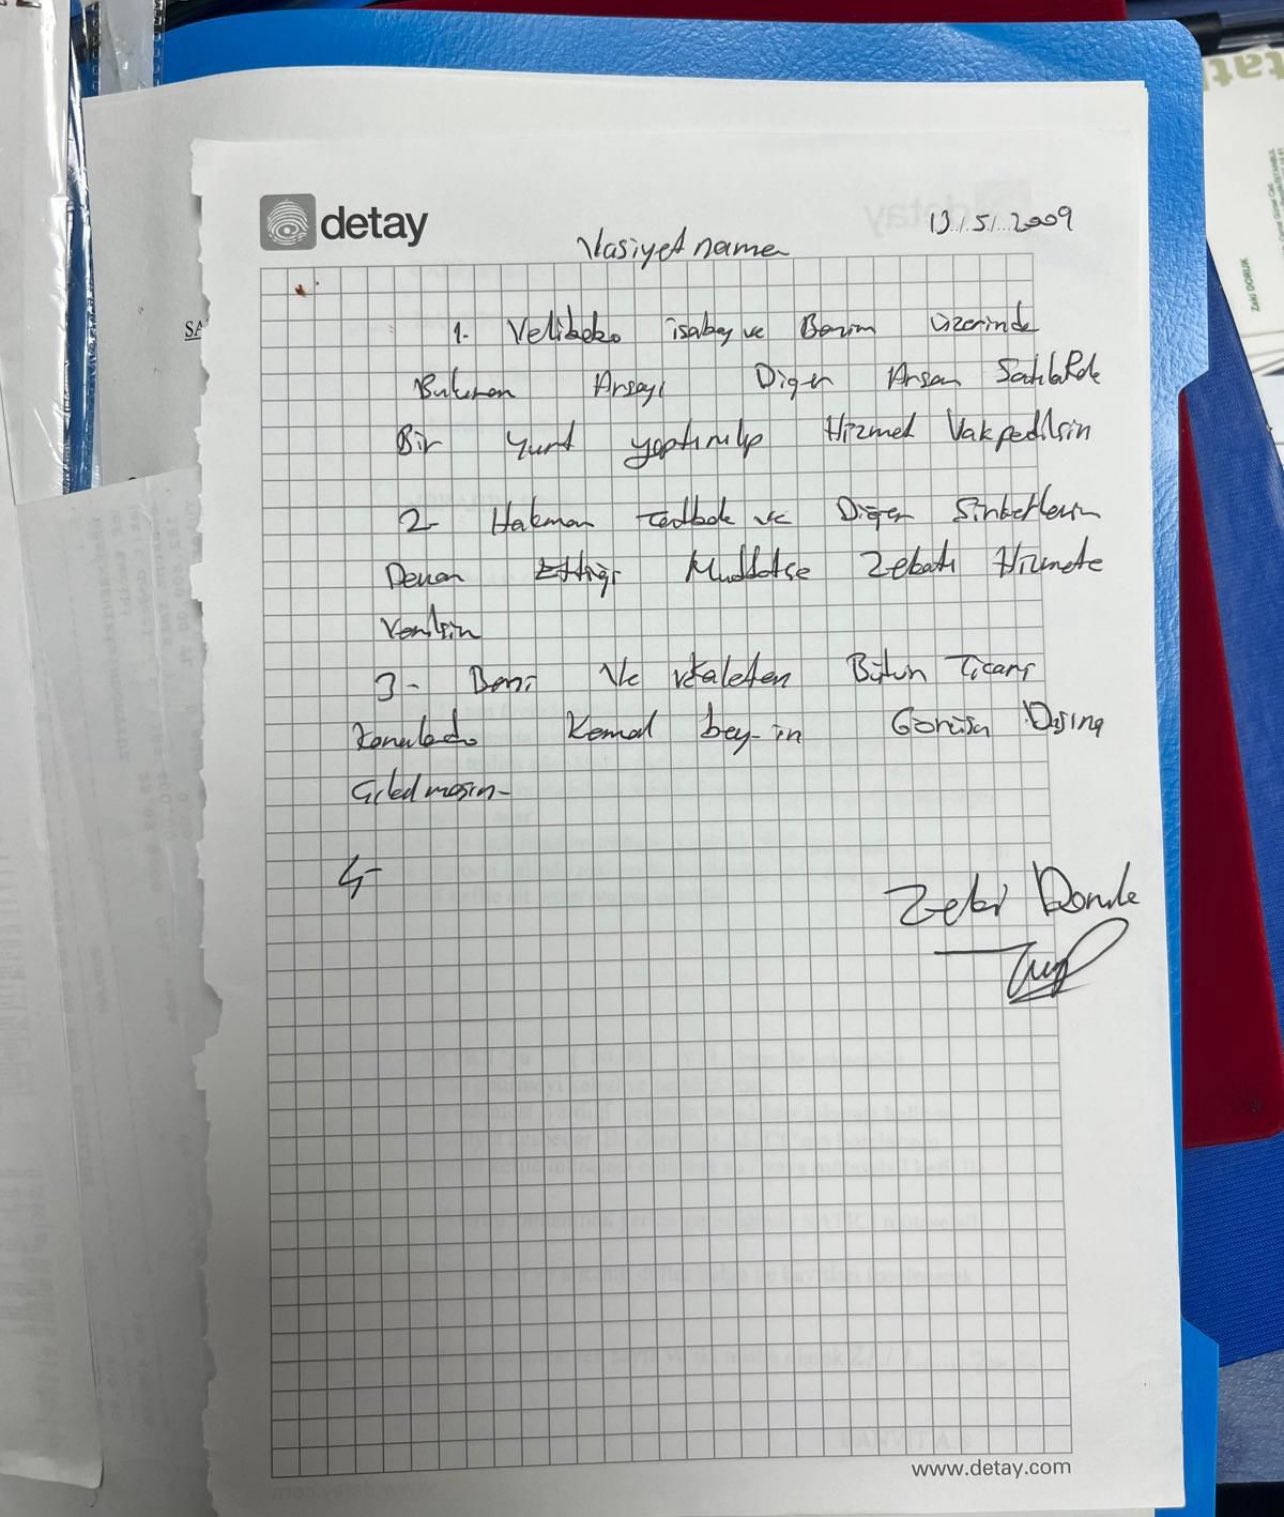 detay
13/5/2009
Vasiyetname
1. Velibaba isabey ve Benim üzerinde
Bulunan Arsayı Diğer Arsam Satılarak
Bir Yurt yaptırılıp Hizmet Vakpedilsin
2- Hakman ve Diğer Şirketlerin
Devam Ettiği Müddetçe Zekatı Hizmete
Verilsin
3- Beni Ve vekaleten Bütün Ticari
Konularda Kemal bey-in Görüşü Dışına
Çıkılmasın-
4-
Zeki Doruk
www.detay.com
Zeki DORUK